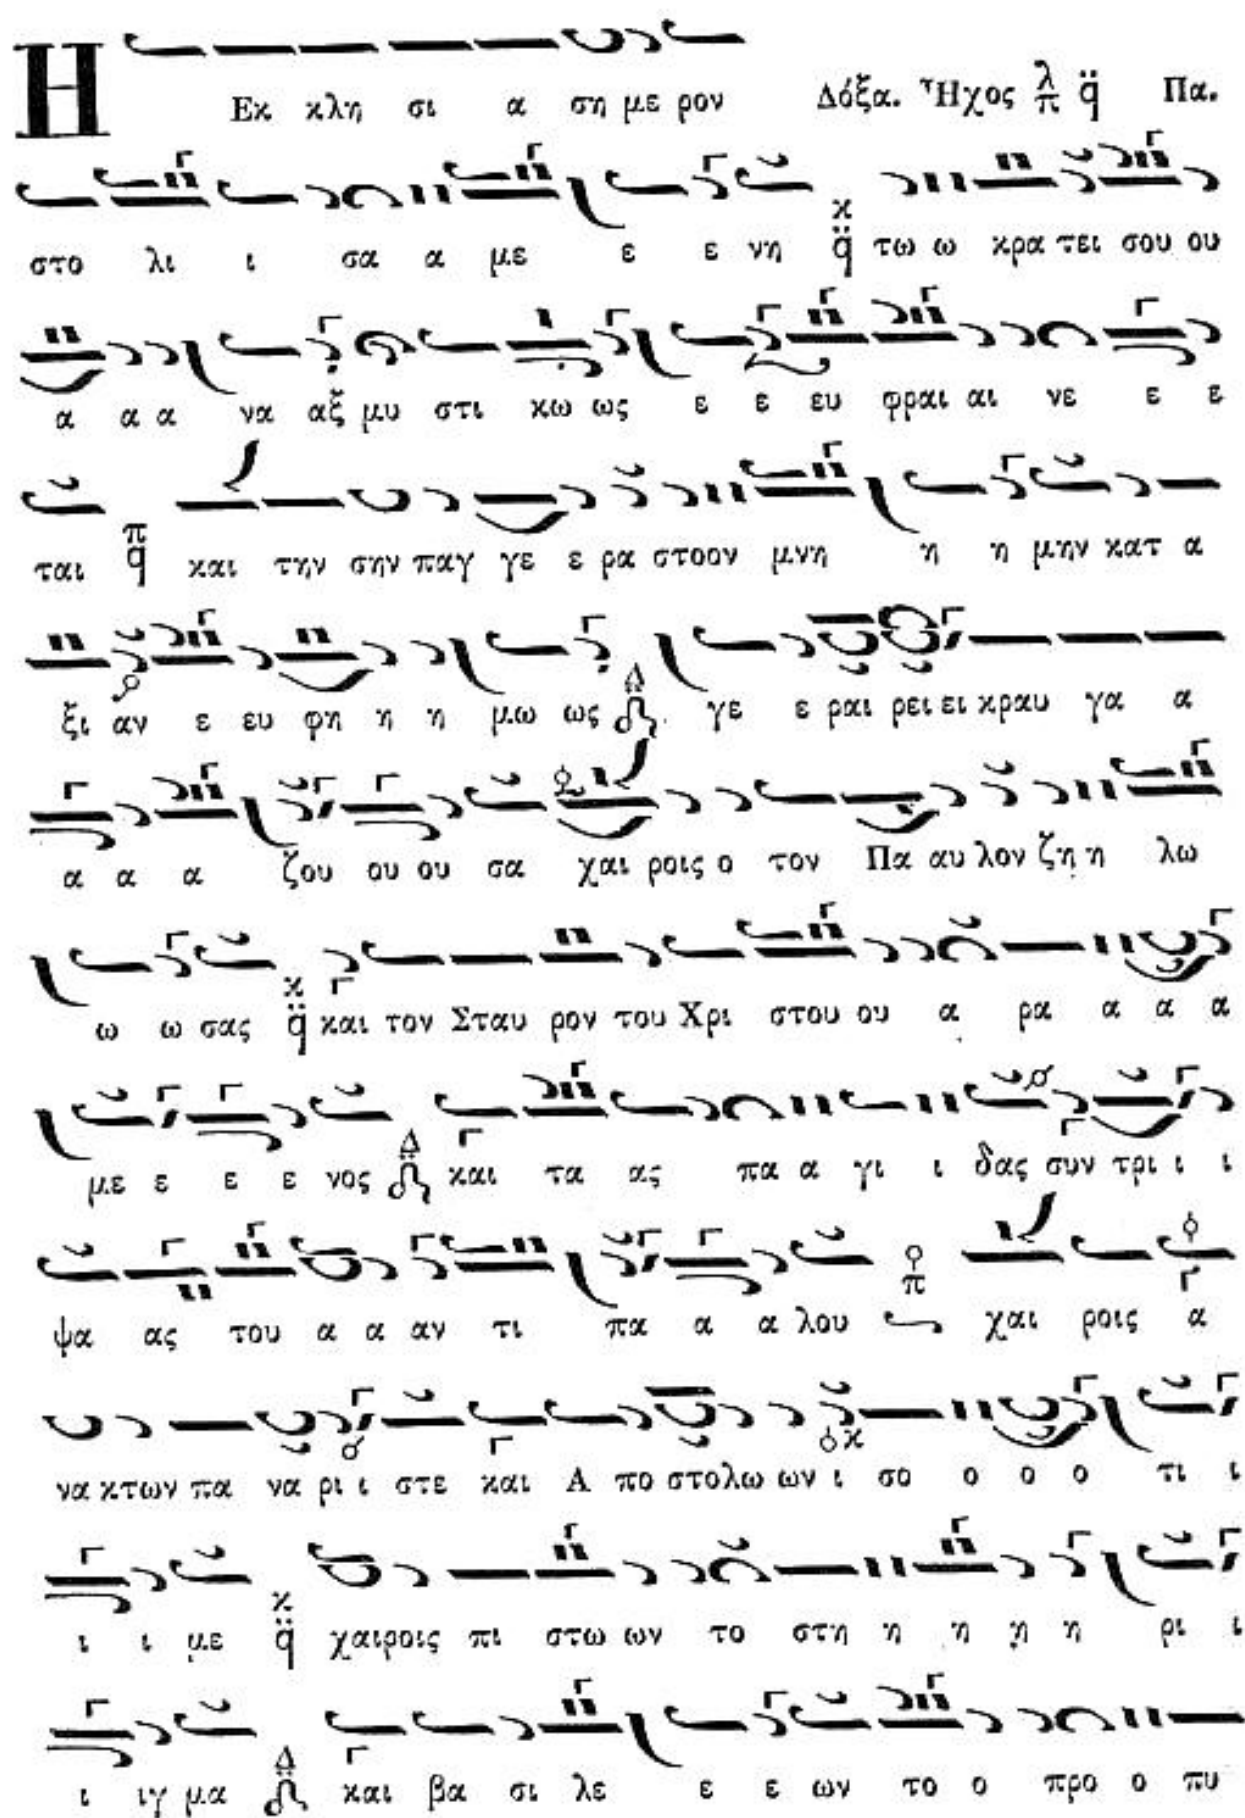 Η Εκ κλη σι α ση με ρον Δόξα. Ἦχος λ π q̈ Πα.
στο λι ι σα α με ε ε νη κ q̈ τω ω κρα τει σου ου
α α α να αξ μυ στι κω ως ε ε ευ φραι αι νε ε ε
ται π q̈ και την σην παγ γε ε ρα στοον μνη η η μην κατ α
ξι αν ε ευ φη η η μω ως Δ γε ε ραι ρει ει κραυ γα α
α α α ζου ου ου σα χαι ροις ο τον Πα αυ λον ζη η λω
ω ω σας κ q̈ και τον Σταυ ρον του Χρι στου ου α ρα α α α
με ε ε ε νος Δ και τα ας πα α γι ι δας συν τρι ι ι
ψα ας του α α αν τι πα α α λου π χαι ροις α
να κτων πα να ρι ι στε και Α πο στολω ων ι σο ο ο ο τι ι
ι ι με κ q̈ χαιροις πι στω ων το στη η η η η ρι ι
ι ιγ μα Δ και βα σι λε ε ε ων το ο προ ο πυ